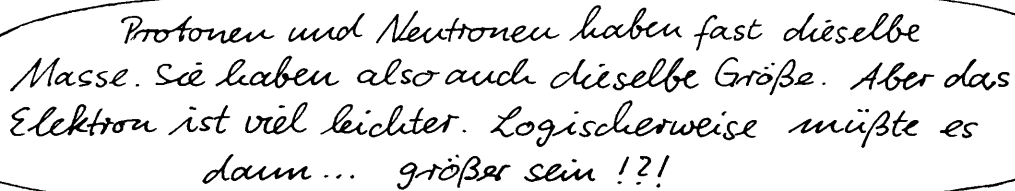 Protonen und Neutronen haben fast dieselbe
Masse. Sie haben also auch dieselbe Größe. Aber das
Elektron ist viel leichter. Logischerweise müßte es
dann... größer sein !?!